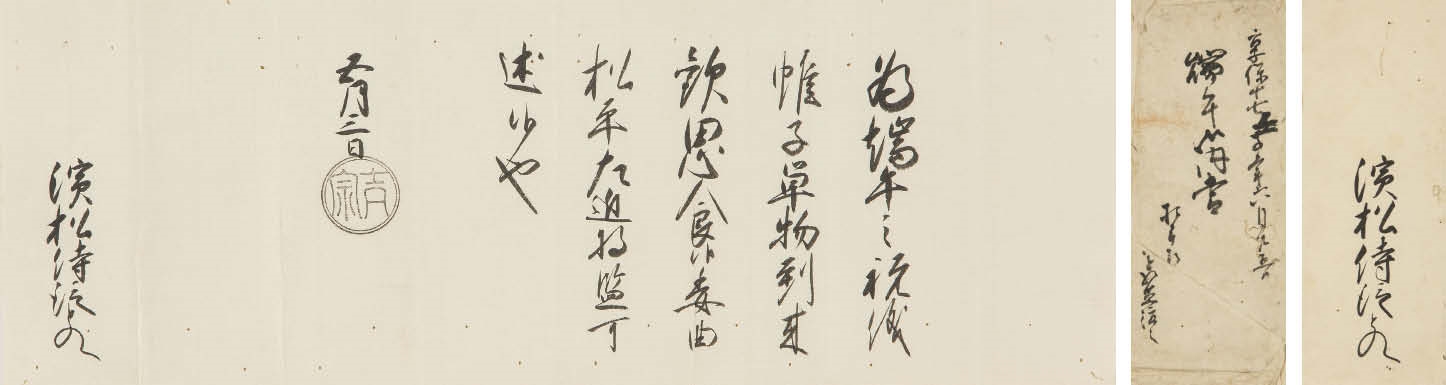 為端午之祝儀
帷子単物到来
歓思食候委曲
松平左近将監可
述候也
五月三日
吉宗
濱松侍従とのへ
享保十七壬子年六月
端午御内書
濱松侍従とのへ